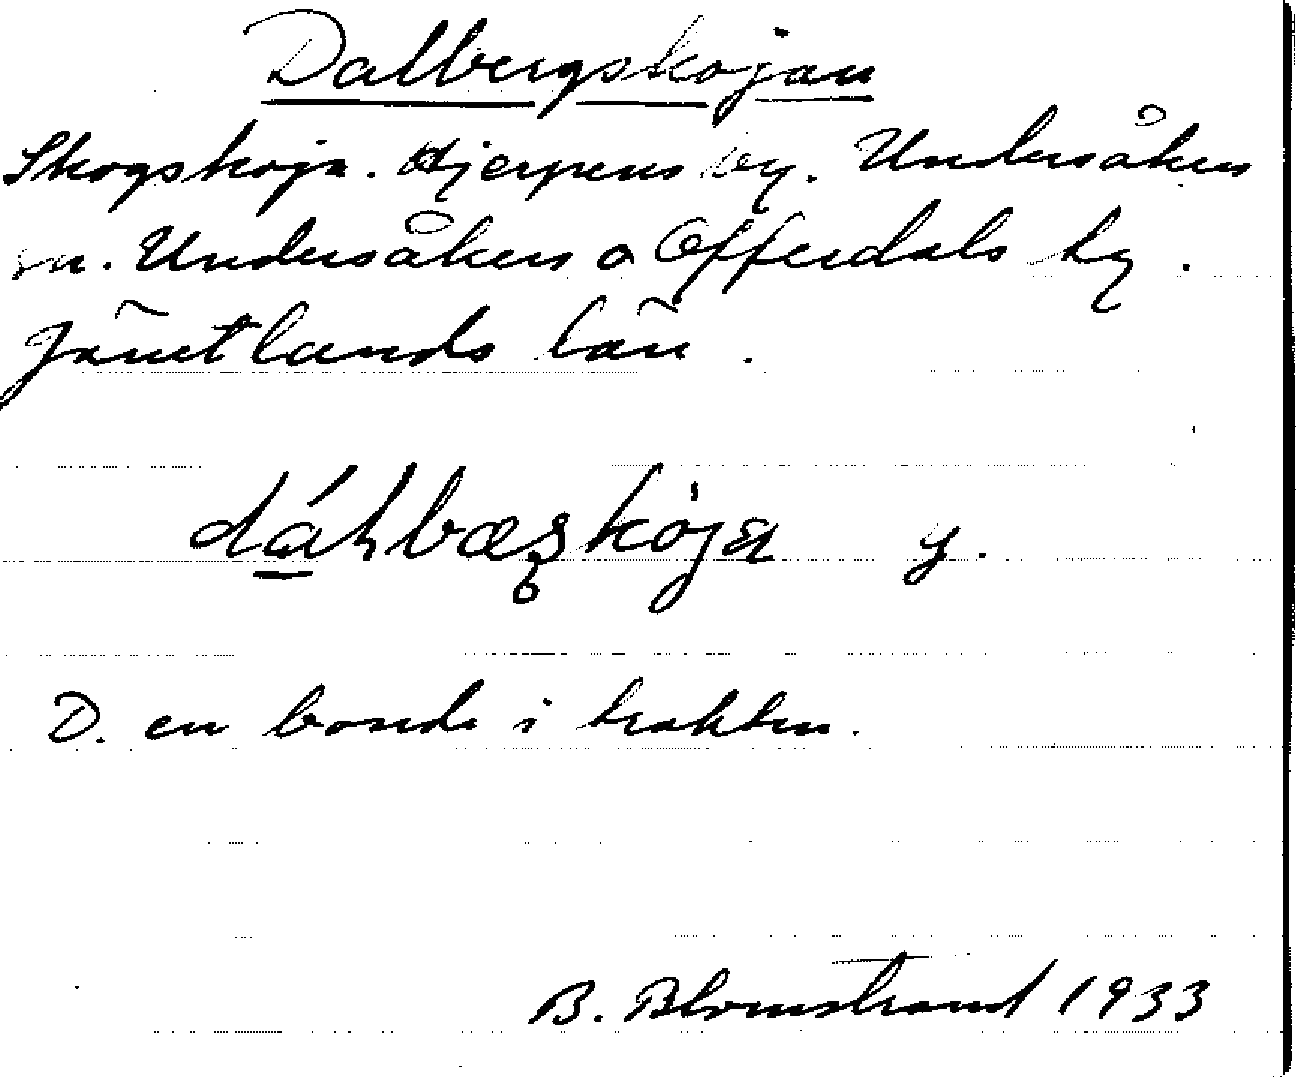 Dalbergskojan
Skogskoja. Hjerpens by. Undersåkers
sn. Undersåkers o Offerdals tg.
Jämtlands län.
y.
D. en bonde i trakten.
B. Blomstrand 1933